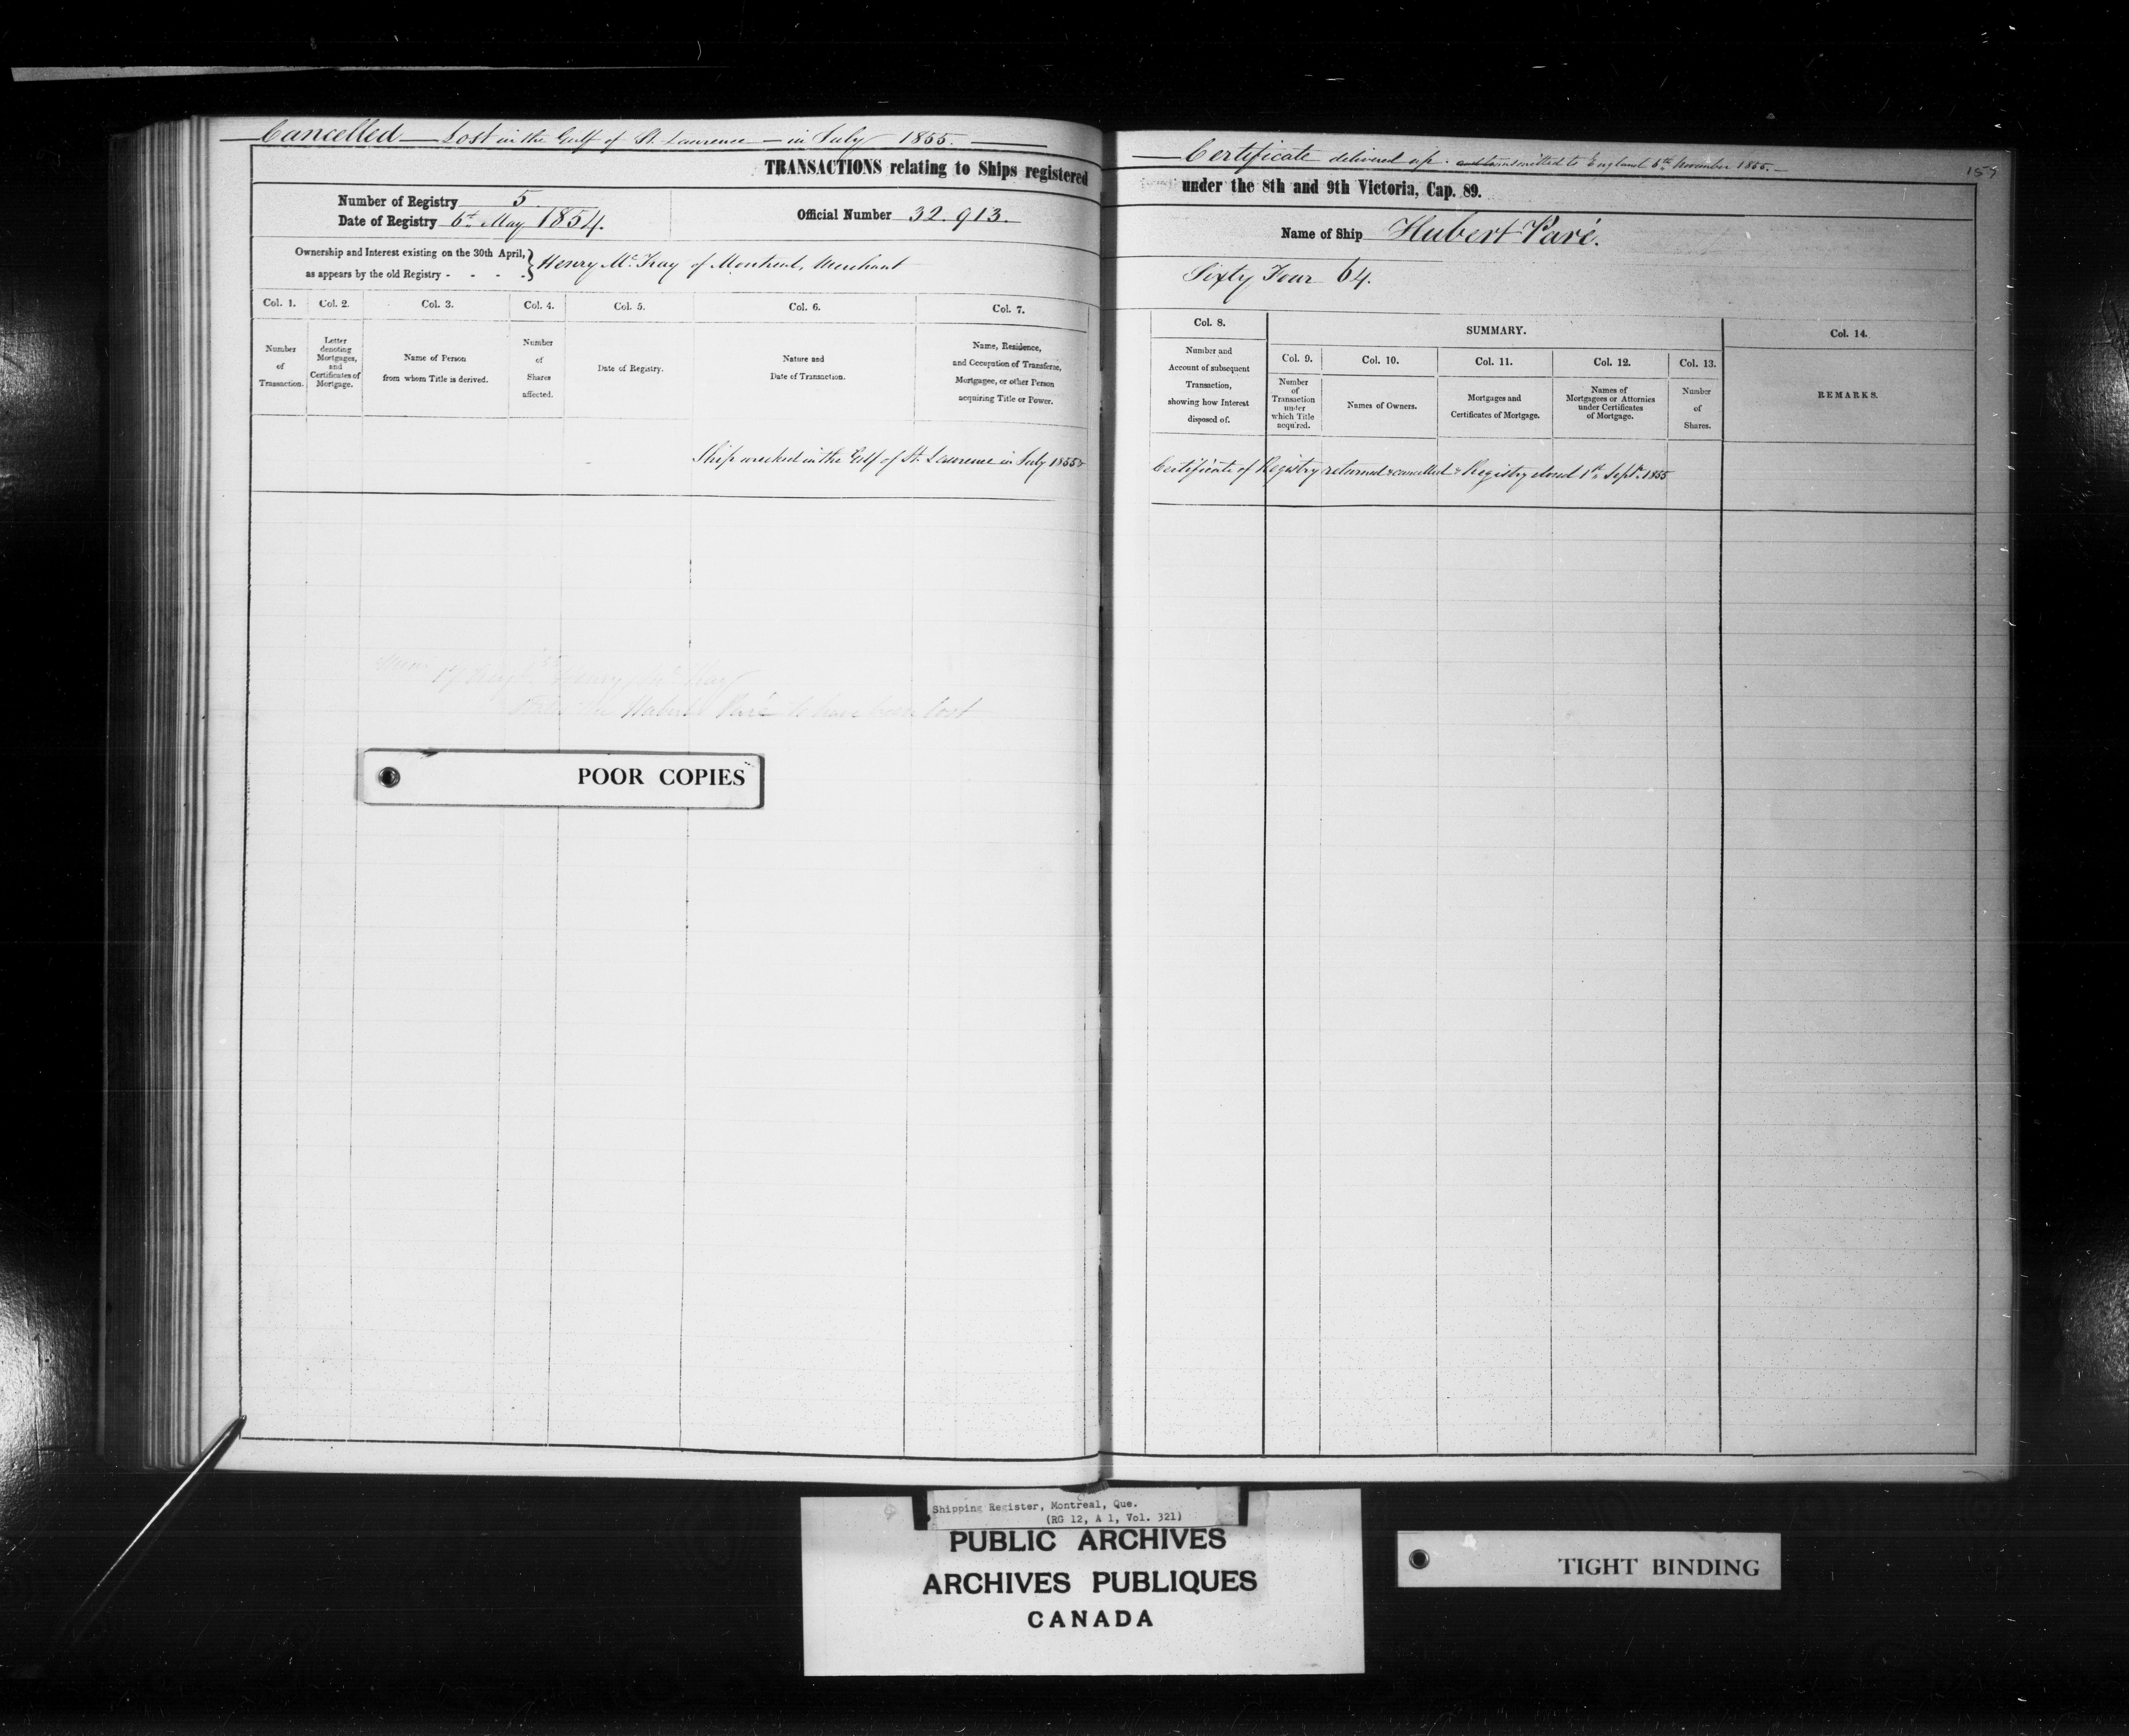 Cancelled — Lost in the Gulf of St. Laurence — in July 1855.
TRANSACTIONS relating to Ships registered
Number of Registry 5.
Date of Registry 6th May 1854.
Official Number 32.913.
Ownership and Interest existing on the 30th April,
as appears by the old Registry - - - -
} Henry Mc Kay of Montreal, Merchant
Col. 1. Col. 2. Col. 3. Col. 4. Col. 5. Col. 6. Col. 7.
Number
of
Transaction.
Letter
denoting
Mortgages,
and
Certificates of
Mortgage.
Name of Person
from whom Title is derived.
Number
of
Shares
affected.
Date of Registry.
Nature and
Date of Transaction.
Name, Residence,
and Occupation of Transferee,
Mortgagee, or other Person
acquiring Title or Power.
Ship wrecked in the Gulf of St. Laurence in July 1855 &
Henry Mc Kay
the Hubert Paré to have been lost
POOR COPIES
Certificate delivered up. and transmitted to England 8th November 1855. —
157
under the 8th and 9th Victoria, Cap. 89.
Name of Ship Hubert Paré.
Sixty Four 64.
Col. 8.
Number and
Account of subsequent
Transaction,
showing how Interest
disposed of.
SUMMARY.
Col. 9. Col. 10. Col. 11. Col. 12. Col. 13.
Number
of
Transaction
under
which Title
acquired.
Names of Owners.
Mortgages and
Certificates of Mortgage.
Names of
Mortgagees or Attornies
under Certificates
of Mortgage.
Number
of
Shares.
Col. 14.
REMARKS.
Certificate of Registry returned & cancelled & Registry closed 1st Septr. 1855
Shipping Register, Montreal, Que.
(RG 12, A 1, Vol. 321)
PUBLIC ARCHIVES
ARCHIVES PUBLIQUES
CANADA
TIGHT BINDING